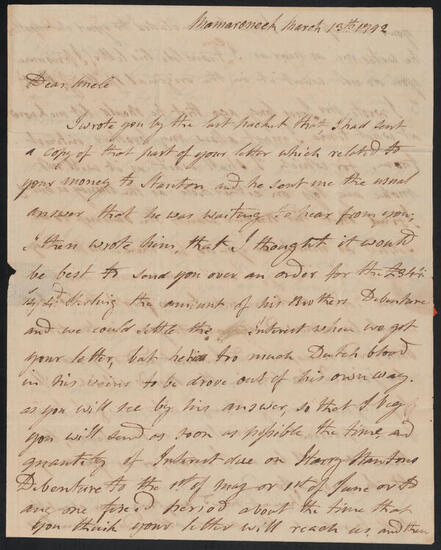 Mamaroneck March 13th 1792
Dear Uncle
I wrote you by the last packet that, I had sent
a copy of that part of your letter which related to
your money to Stanton and he sent me the usual
answer that he was waiting to hear from you,
I then wrote him, that I thought it would
be best to send you over an order for the
the amount of his Brothers Debenture
and we could settle the Interest when we got
your letter, but he has too much Dutch blood
in his veins to be drove out of his own way.
as you will see by his answer, so that I beg
you will send as soon as possible the time and
quantity of Interest due on Harry Stantons
Debenture to the 1st of may or 1st of June or to
any one fixed period about the time that
you think your letter will reach us and then